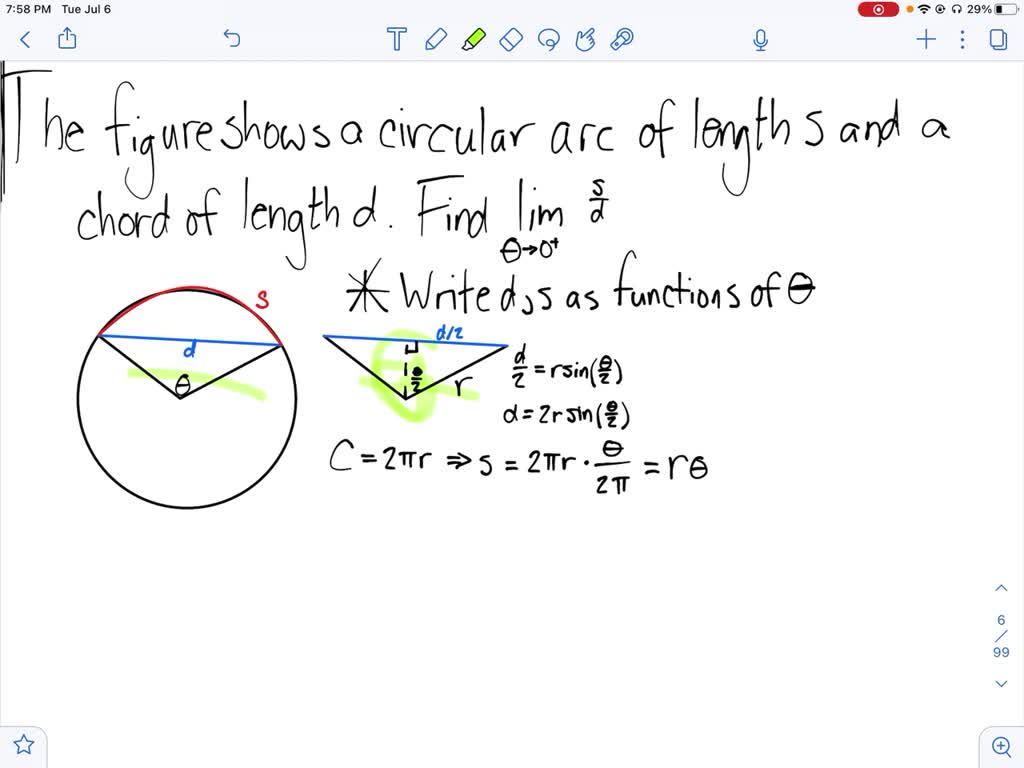 7:58 PM Tue Jul 6 29%
T
The figure shows a circular arc of length s and a
chord of length d. Find lim s/d
θ→0⁺
* Write d, s as functions of θ
s
d
θ
d/2
θ/2
r
d/2 = r sin(θ/2)
d = 2r sin(θ/2)
C = 2πr ⇒ s = 2πr · θ/2π = rθ
6
/
99